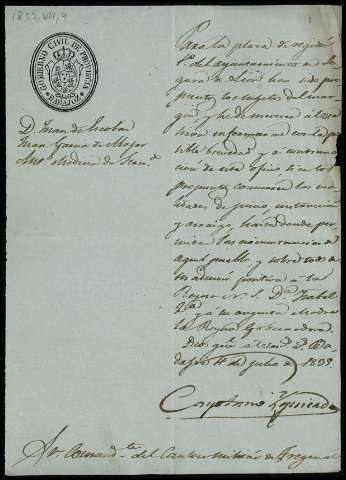 1835, VII, 4
GOBIERNO CIVIL DE PROVINCIA
BADAJOZ
D. Juan de Escobar
Juan Garcia de
Medina de
Para la plaza de
del ayuntamiento de
de Leon, han sido pro-
puesto los sugetos del mar-
gen y he de merecer á
informarme con la po-
sible brevedad y á
cion de este oficio, si en los
propuestos concurren las cua-
lidades de juicio,
y arraigo,
las circunstancias de
aquel pueblo y sobre todo de
su adesion positiva á la
Reyna N. S. D.ª Isabel
2.ª y á su augusta Madre
la Reyna Gobernadora.
Dios gue á Ba-
dajoz 4 de julio de 1835.
Sr. Comand.te del Canton militar de Fregenal